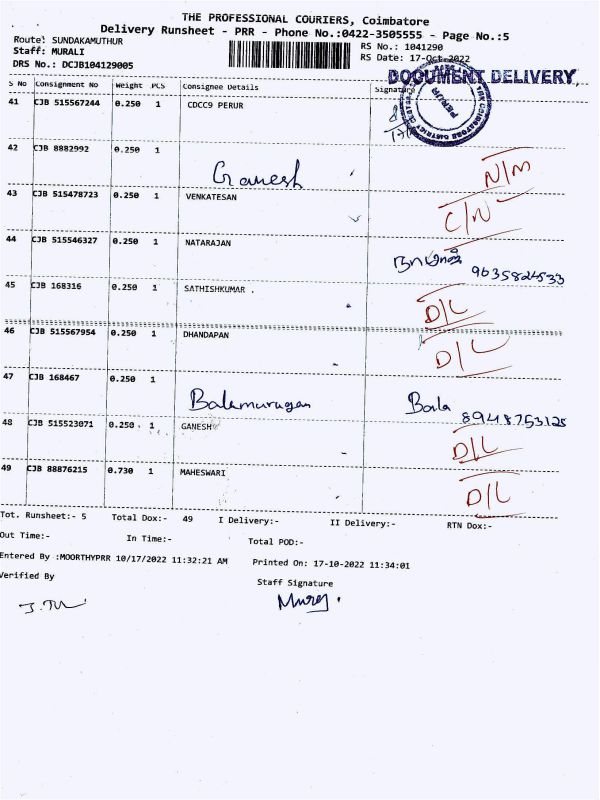 THE PROFESSIONAL COURIERS, Coimbatore
Delivery Runsheet - PRR - Phone No.:0422-3505555 - Page No.:5
Route: SUNDAKAMUTHUR
RS No.: 1041290
Staff: MURALI
RS Date: 17-Oct-2022
DRS No.: DCJB104129005
DOCUMENT DELIVERY
S No Consignment No Weight PCS Consignee Details Signature
41 CJB 515567244 0.250 1 CDCC9 PERUR
PERUR
42 CJB 8882992 0.250 1 Ganesh N/M
43 CJB 515478723 0.250 1 VENKATESAN C/N
44 CJB 515546327 0.250 1 NATARAJAN 9635824533
45 CJB 168316 0.250 1 SATHISHKUMAR . D/L
46 CJB 515567954 0.250 1 DHANDAPAN D/L
47 CJB 168467 0.250 1 Balamurugan Bala 8948753125
48 CJB 515523071 0.250 1 GANESH D/L
49 CJB 88876215 0.730 1 MAHESWARI D/L
Tot. Runsheet:- 5 Total Dox:- 49 I Delivery:- II Delivery:- RTN Dox:-
Out Time:- In Time:- Total POD:-
Entered By :MOORTHYPRR 10/17/2022 11:32:21 AM Printed On: 17-10-2022 11:34:01
Verified By Staff Signature